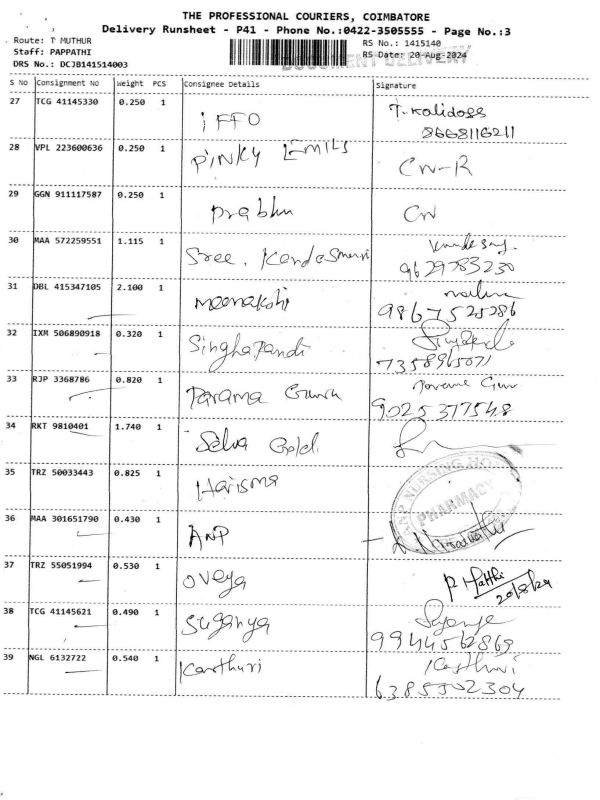 THE PROFESSIONAL COURIERS, COIMBATORE
Delivery Runsheet - P41 - Phone No.:0422-3505555 - Page No.:3
Route: T MUTHUR RS No.: 1415140
Staff: PAPPATHI RS Date: 20-Aug-2024
DRS No.: DCJB141514003 DOCUMENT DELIVERY
S No Consignment No Weight PCS Consignee Details Signature
27 TCG 41145330 0.250 1 iFFO T. Kalidoss
8668116211
28 VPL 223600636 0.250 1 PINKY CW-R
29 GGN 911117587 0.250 1 Prabhu CW
30 MAA 572259551 1.115 1 Sree.
9629783230
31 DBL 415347105 2.100 1 meenakshi
9867525286
32 IXM 506890918 0.320 1 Singhapandi
7358965071
33 RJP 3368786 0.820 1 Parama Guru
9025377548
34 RKT 9810401 1.740 1 Selva Gold
35 TRZ 50033443 0.825 1 Harisma
NURSING HO
PHARMACY
36 MAA 301651790 0.430 1 ANP
37 TRZ 55051994 0.530 1 oveya
20/8/24
38 TCG 41145621 0.490 1 Suganya
9944562869
39 NGL 6132722 0.540 1 Kasthuri Kasthuri
6385502304